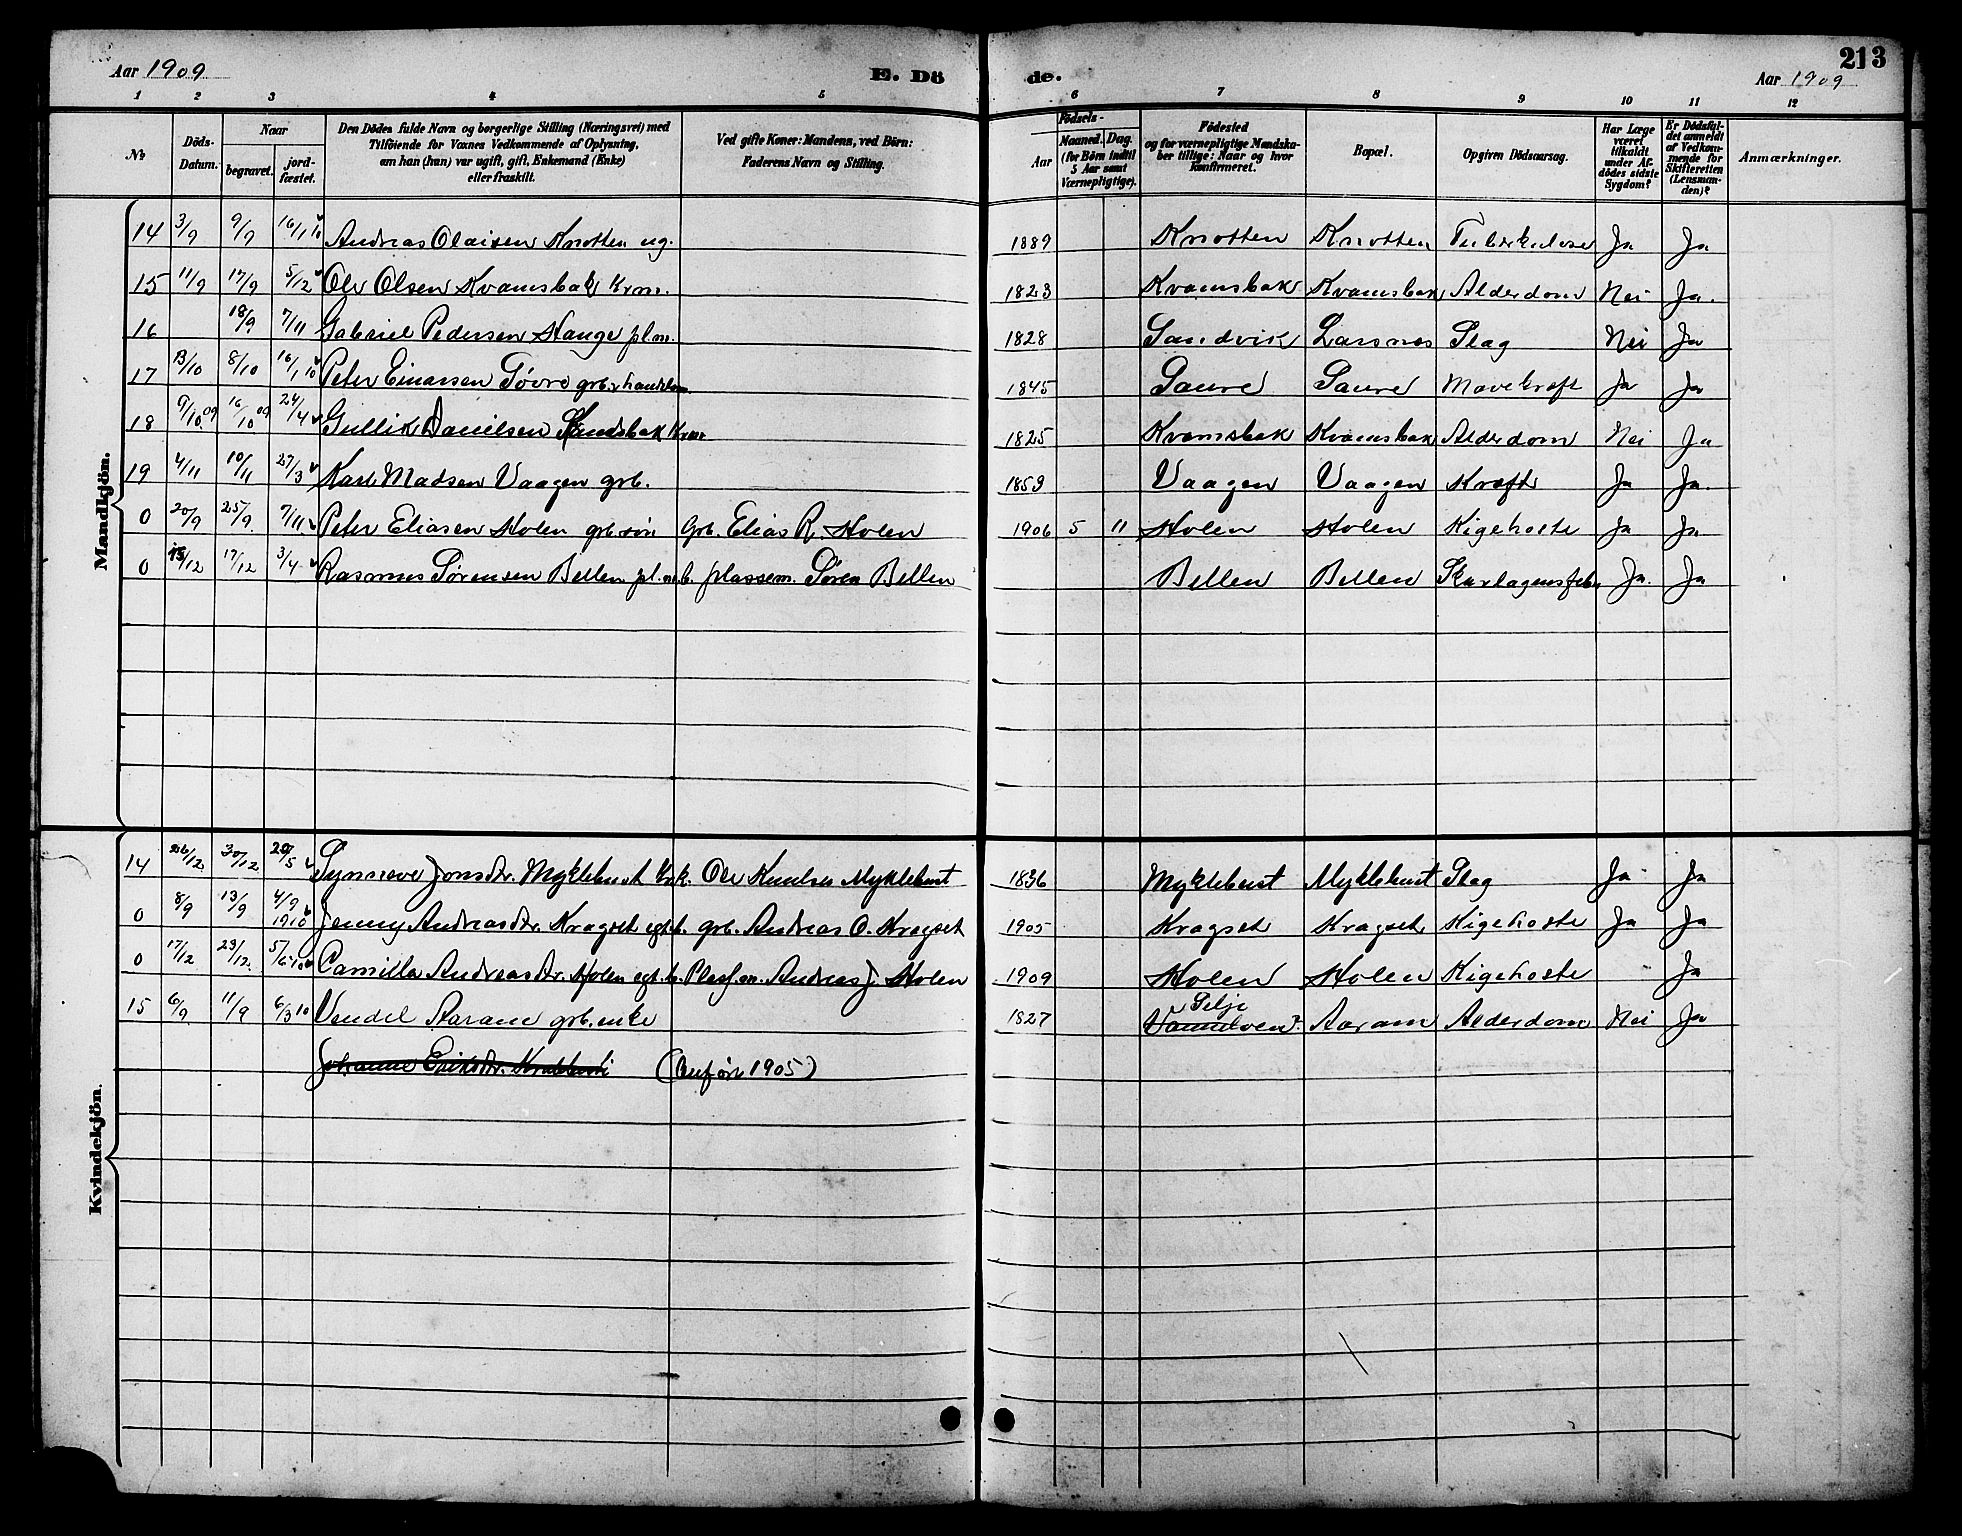 213
Aar 1909 E. Dö de. Aar 1909
1 2 3 4 5 6 7 8 9 10 11 12
No. Döds-Datum. Naar begravet. jord-fæstet. Den Dödes fulde Navn og borgerlige Stilling (Næringsvei) med Tilföiende for Voxnes Vedkommende af Oplysning, om han (hun) var ugift, gift, Enkemand (Enke) eller fraskilt. Ved gifte Koner: Mandens, ved Börn: Faderens Navn og Stilling. Födsels- Aar Maaned. Dag. (for Börn indtil 5 Aar samt Værnepligtige). Födested og for værnepligtige Mandska-ber tillige: Naar og hvor konfirmeret. Bopæl. Opgiven Dödsaarsag. Har Læge været tilkaldt under Af-dödes sidste Sygdom? Er Dödsfal-det anmeldt af Vedkom-mende for Skifteretten (Lensman-den)? Anmærkninger.
Mandkjön.
14 3/9 9/9 16/1 10 Andreas Olaisen Knotten ug. 1889 Knotten Knotten Tuberkulose Ja Ja
15 11/9 17/9 5/12 Ole Olsen Kvamsbak krm. 1823 Kvamsbak Kvamsbak Alderdom Nei Ja.
16 18/9 7/11 Gabriel Pedersen Hauge pl.m. 1828 Sandvik Larsnes Slag Nei Ja
17 3/10 8/10 16/1 10 Peter Einarsen Tøvre grb. 1845 Saure Saure Mavekræft Ja Ja
18 9/10 09 16/10 09 24/4 Gullik Danielsen 1825 Kvamsbak Kvamsbak Alderdom Nei Ja
19 4/11 10/11 27/3 Karl Madsen Vaagen grb. 1859 Vaagen Vaagen Kræft Ja Ja
0 20/9 25/9. 7/11 Peter Eliasen Holen grb.søn Grb. Elias R. Holen 1906 5 11 Holen Holen Kigehoste Ja Ja
0 13/12 17/12 3/4 Rasmus Sørensen Bellen pl.m.b. plassem. Søren Bellen Bellen Bellen Skarlagensfeber Ja. Ja
Kvindekjön.
14 26/12. 30/12 20/5 Synneve Jonsdtr. Myklebust krk. Ole Knutsen Myklebust 1836 Myklebust Myklebust Slag Ja Ja
0 8/9 13/9 4/9 1910 Jenny Andreasdtr. Kragset egt.b. grb. Andreas O. Kragset 1905 Kragset Kragset Kigehoste Ja Ja
0 17/12 23/12. 5/6-10 Camilla Andreasdtr. Holen egt.b. Plasf.m. Andreas J. Holen 1909 Holen Holen Kigehoste Ja
15 6/9. 11/9 6/3 10 Vendel Aaram grb. enke 1827 Silje Aaram Alderdom Nei Ja
Johanne Eriksdtr. (Anført 1905)